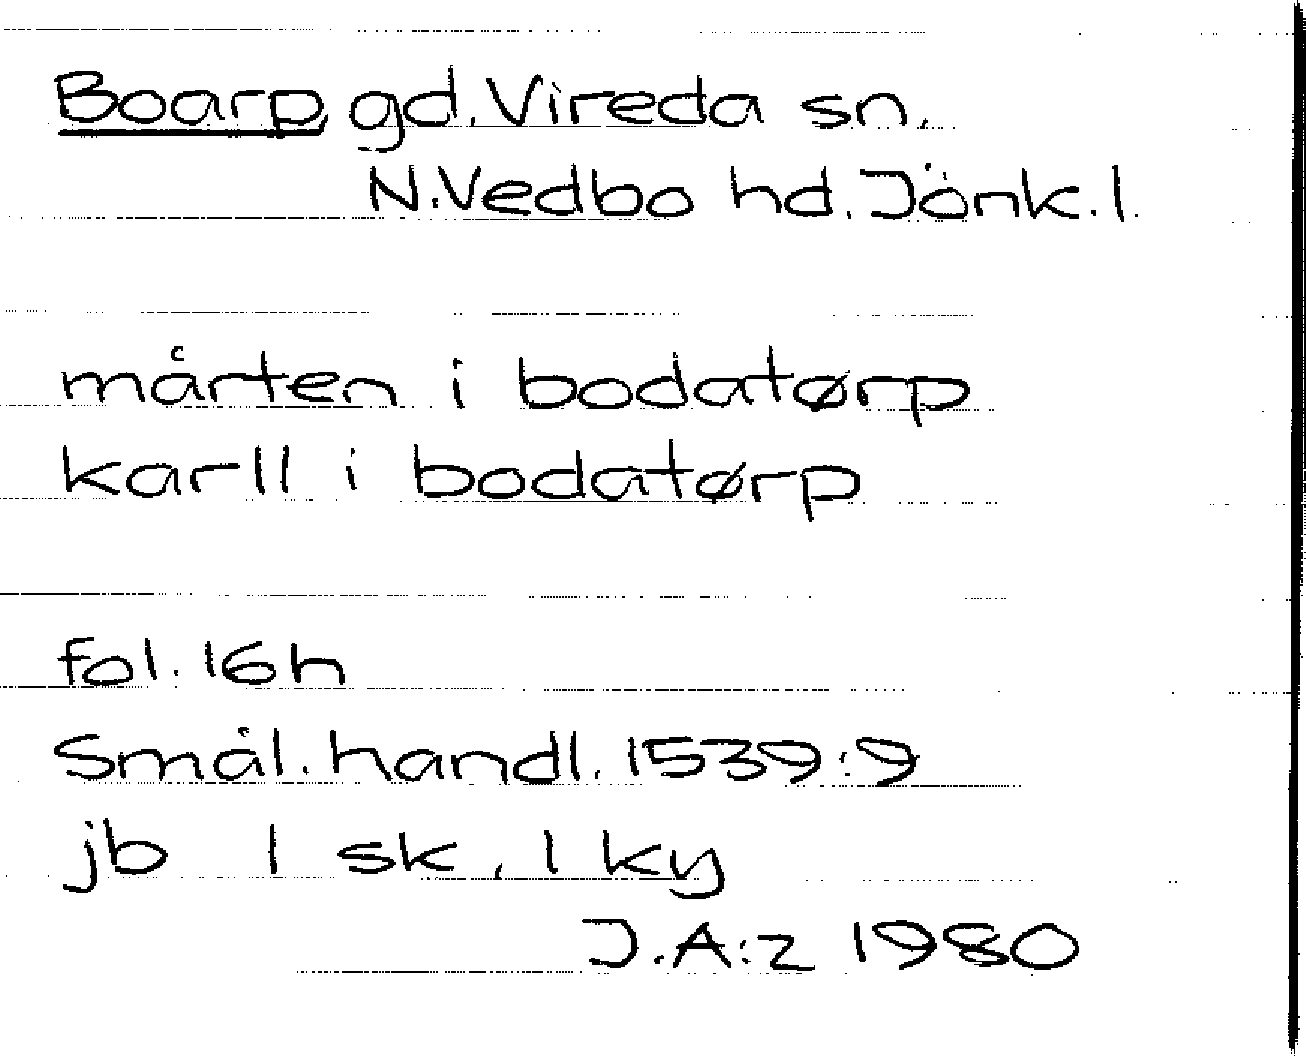 Boarp, gd. Vireda sn.
N. Vedbo hd. Jönk. l.
mårten i bodatørp
karll i bodatørp
fol. 16h
Smål. handl. 1539:9
jb 1 sk, 1 ky
J.A:z 1980